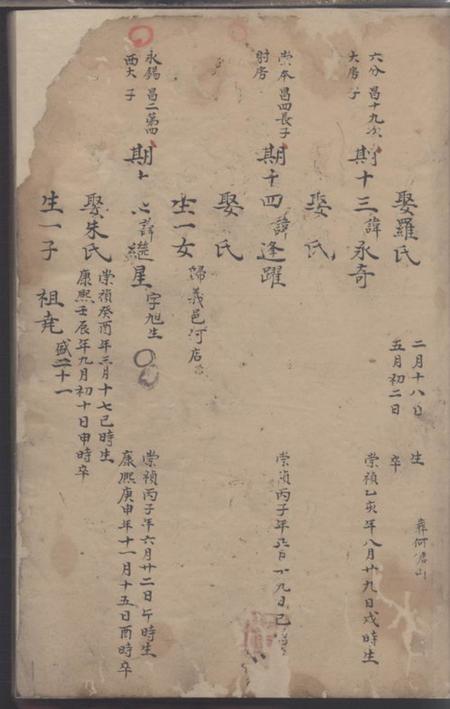 六分 昌十九次
大房 子
期十三 諱承奇
崇禎乙亥年八月廿九日戌時生
娶羅氏
二月十八日 生
五月初二日 卒
葬何
崇本 昌四長子
期十四 諱逢躍
崇禎丙子年 月廿九日巳
娶 氏
娶 氏
生一女 歸義邑河店
永錫 昌二第四
西大 子
期十 諱繼星 字旭生
崇禎丙子年六月廿二日午時生
康熙庚申年十一月十五日酉時卒
娶朱氏
崇禎癸酉年三月十七巳時生
康熙壬辰年九月初十日申時卒
生一子 祖堯 盛二十一